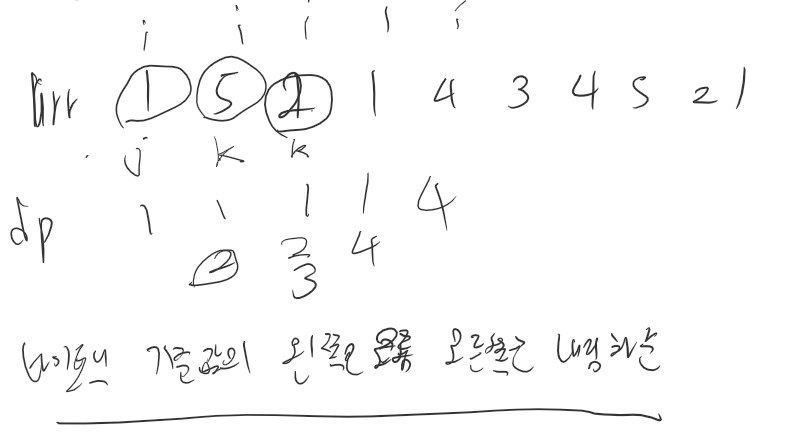 i i i i i
arr 1 5 2 1 4 3 4 5 2 1
j k k
dp 1 1 1 1 4
2 2 4
3
바이토닉 기준값의 왼쪽은 오름 오른쪽은 내림차순